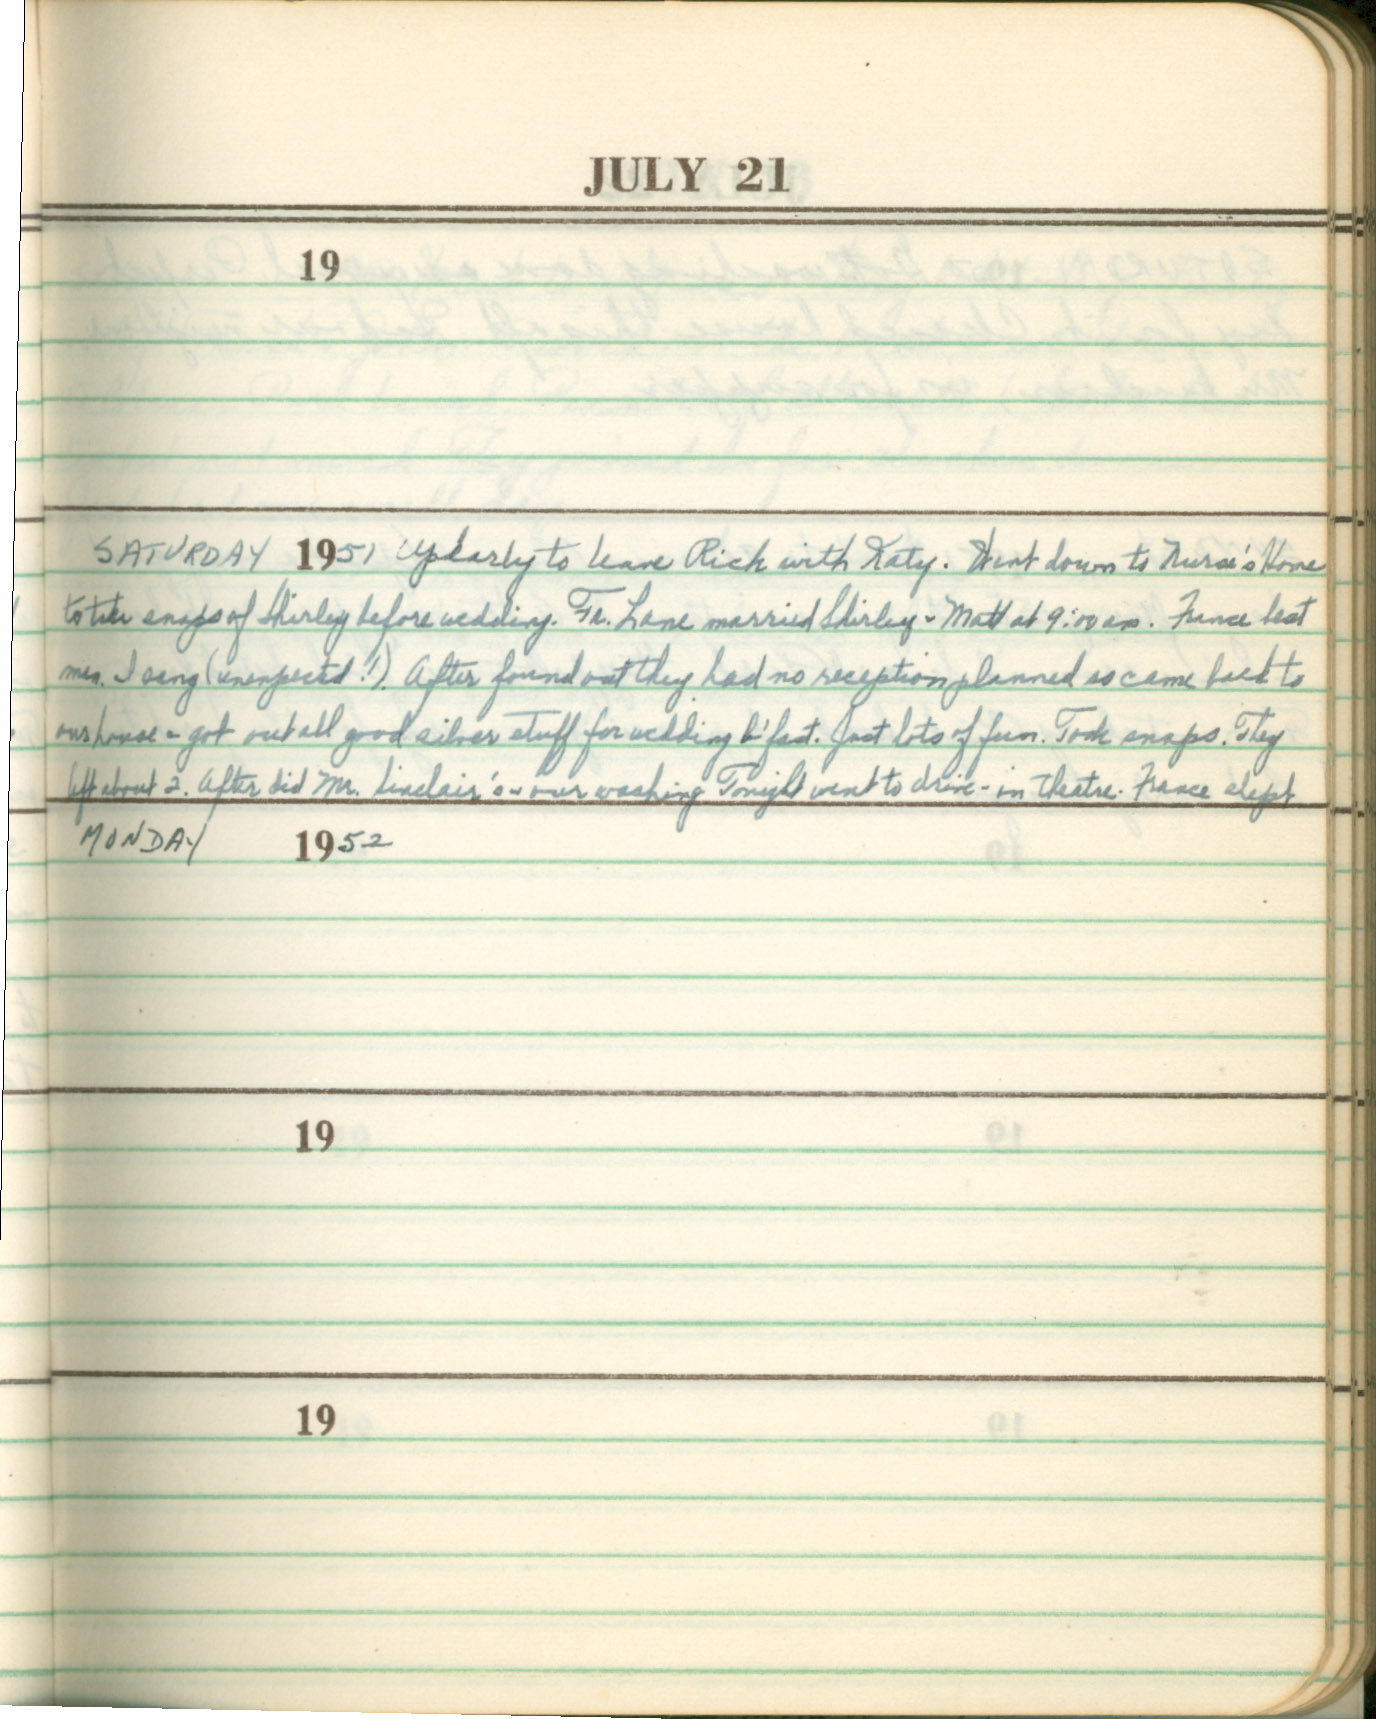 JULY 21
19
SATURDAY 1951 Up early to leave Rich with Katy. Went down to Nurse's Home
to take snaps of Shirley before wedding. Fr. Lane married Shirley - Matt at 9:00 am. France best
man. I sang (unexpected!). After found out they had no reception planned so came back to
our house - got out all good silver stuff for wedding b'fast. Just lots of fun. Took snaps. They
left about 2. After did Mr. Sinclair's - our washing Tonight went to drive-in theatre. France slept
MONDAY 1952
19
19